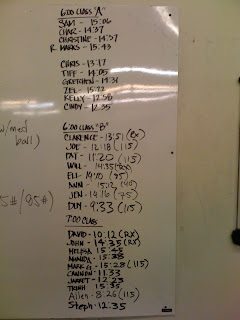 6:00 CLASS "A"
SAM - 15:06
CHAR - 14:37
CHRISTINE - 14:37
R. MARKS - 15:43
CHRIS - 13:17
TIFF - 14:05
GRETCHEN - 14:31
ZEL - 15:22
KELLY - 12:50
CINDY - 12:35
w/med ball)
6:00 CLASS "B"
CLARENCE - 13:51 (RX)
JOE - 12:18 (115)
PAT - 11:20 (115)
WILL - 14:35 (RX)
ELI - 14:10 (85)
ANN - 15:12
JEN - 14:16 (75)
5# / 95#)
9:33 (115)
7:00 CLASS
DAVID - 10:12 (RX)
JOHN - 14:35 (RX)
MELISSA 15:45
MANDA 15:28
MARK 15:28 (115)
CANNON 11:33
JARRET 12:23
TRINH 15:35
Allen - 8:26 (115)
Steph: 12:35